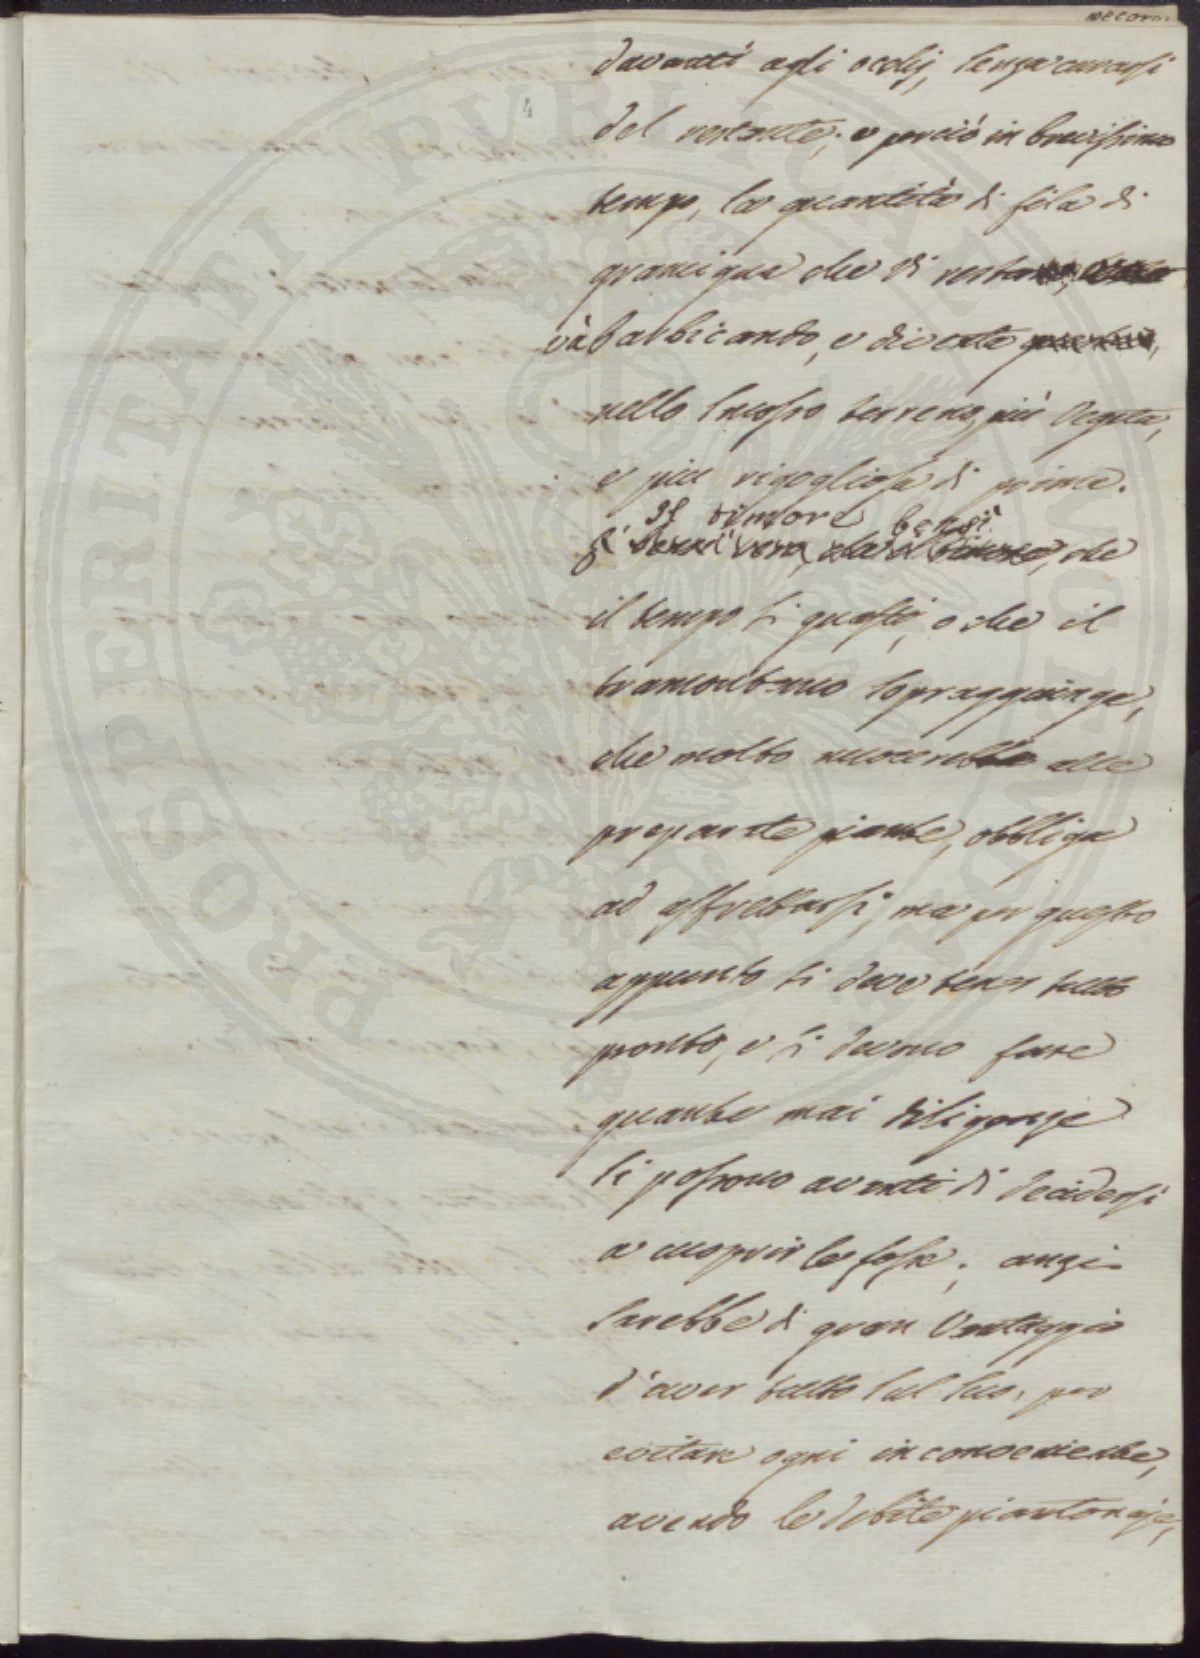 davanti agli occhj, senza curarsi
del restante; e perciò in brevissimo
tempo, la quantità di fila di
gramigna che di resta
và barbicando, e divente
nello smosso terreno, più vegeta,
e più rigogliosa di prima.
Il timore bensì
che
il tempo si guasti, o che il
tramontano sopraggiunga,
che molto nuocerebbe alle
preparate piante, obbliga
ad affrettarsi; ma per questo
appunto si deve tener tutto
pronto, e si devono fare
quante mai diligenze
si possono avanti di decidersi
a ricoprir le fosse; anzi
sarebbe di gran vantaggio
d'aver tutto sul loco, per
evitare ogni inconveniente,
avendo le debite piantonaje,
PROSPERITATI PUBLICAE AUGENDAE